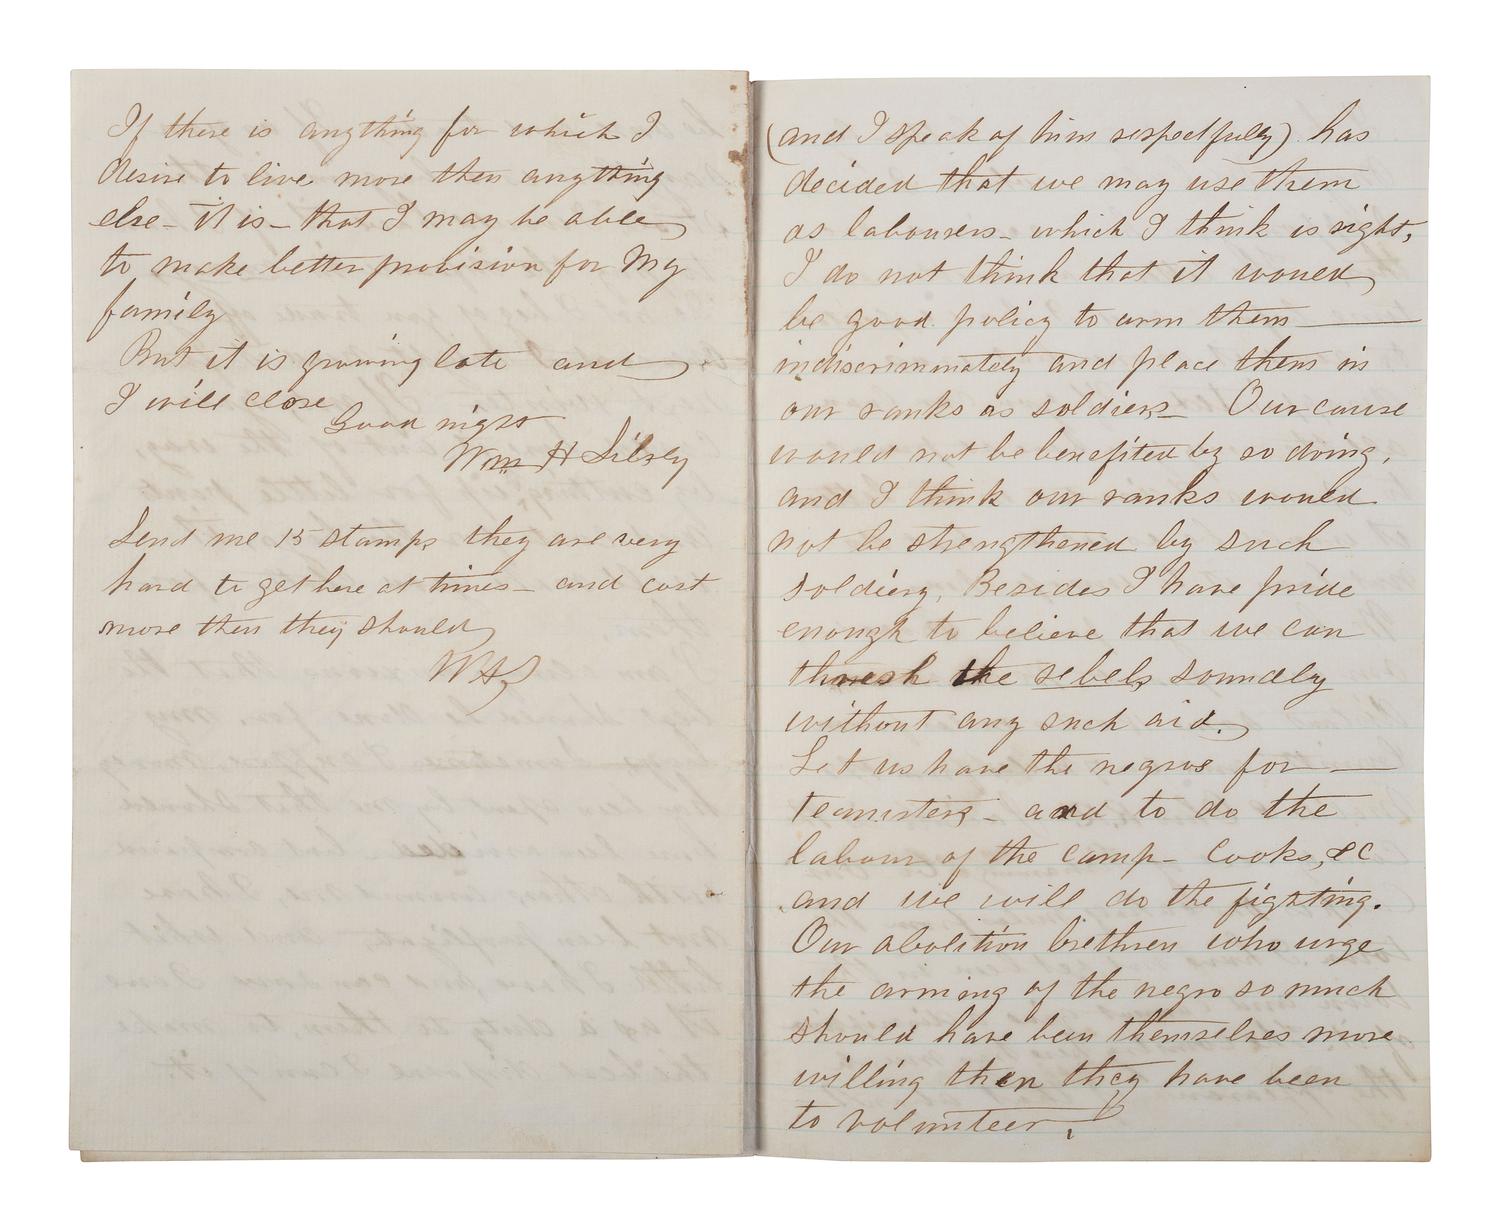 If there is anything for which I
desire to live more then anything
else - it is - that I may be able
to make better provision for my
family
But it is growing late and
I will close
Good night
Wm H
Send me 15 stamps they are very
hard to get here at times - and cost
more then they should
(and I speak of him respectfully) has
decided that we may use them
as labourers - which I think is right,
I do not think that it would
be good policy to arm them —
indiscriminately and place them in
our ranks as soldiers Our cause
would not be benefited by so doing,
and I think our ranks would
not be strengthened by such
soldiery, Besides I have pride
enough to believe that we can
the rebels soundly
without any such aid.
Let us have the negros for —
teamsters - and to do the
labour of the camp - Cooks, &c
and we will do the fighting.
Our abolition brethren who urge
the arming of the negro so much
should have been themselves more
willing then they have been
to volunteer.